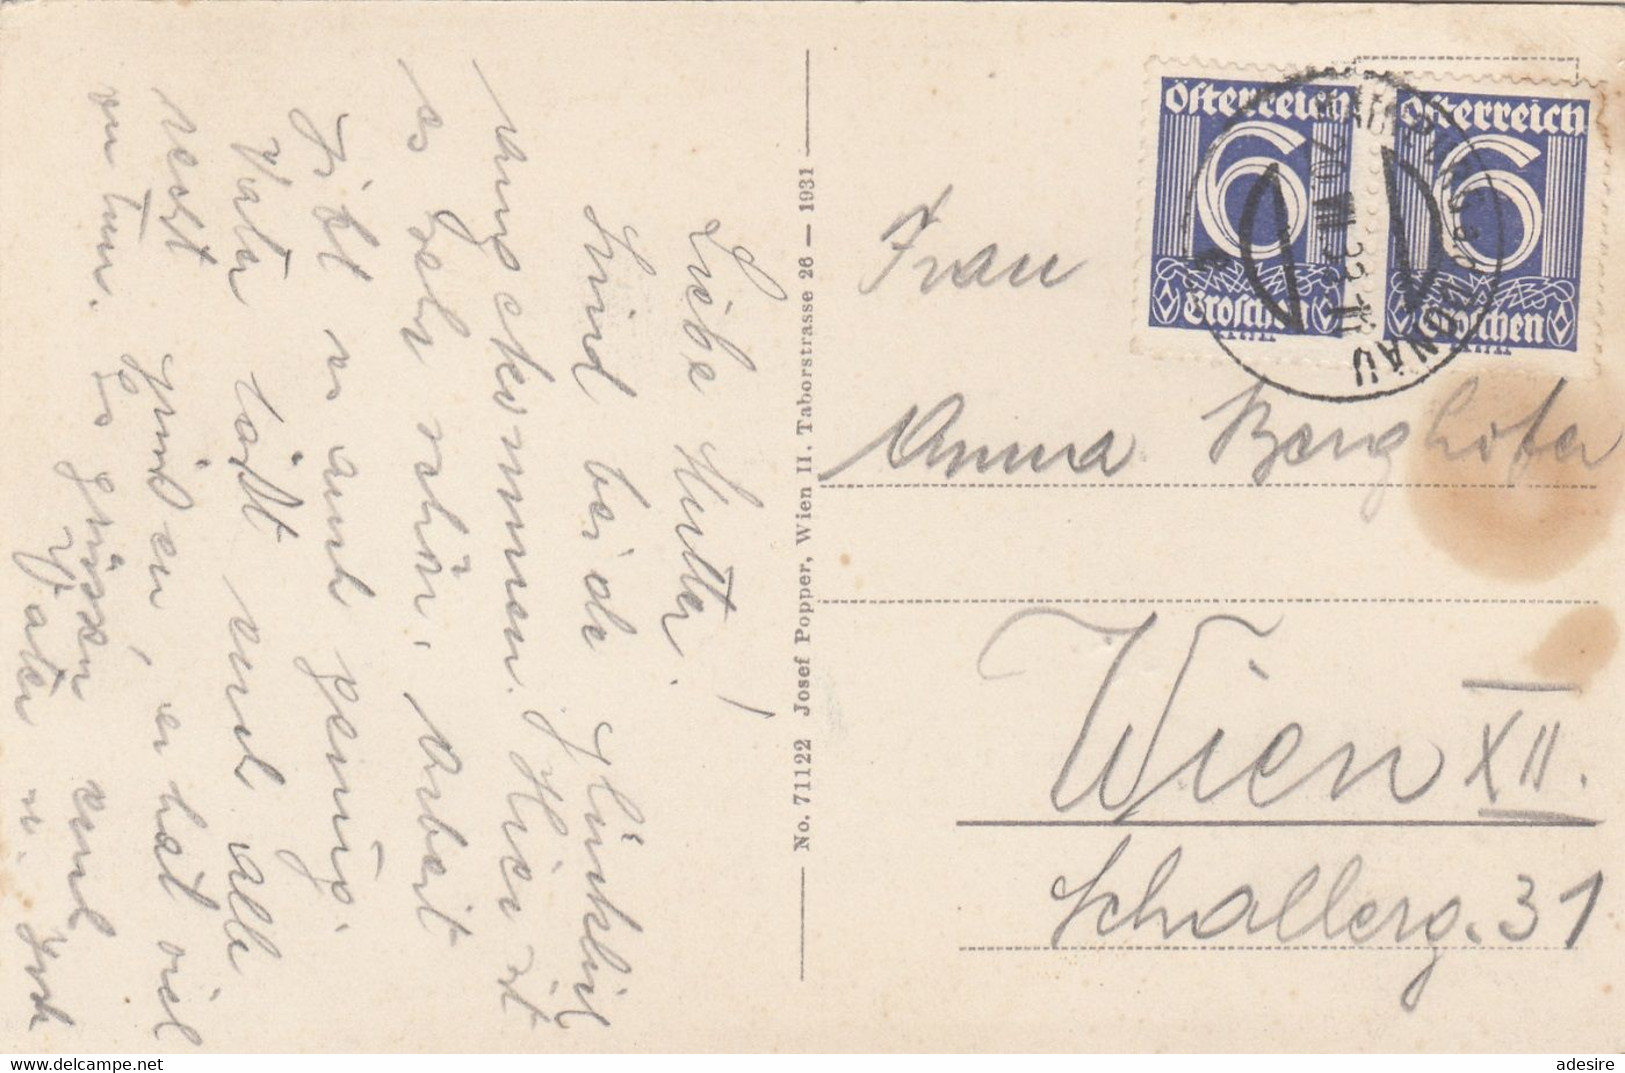 Liebe Mutter!
Sind beide Glücklich
angekommen. Hier ist
es sehr schön. Arbeit
gibt es auch genug.
Vater läßt euch alle
recht grüßen, er hat viel
zu tun. Es grüssen euch
Vater u.
No. 71122 Josef Popper, Wien II. Taborstrasse 26 — 1931
Österreich
6
Groschen
Österreich
6
Groschen
20.III.33.11
Frau
Anna Berghofer
Wien XII.
Schallerg. 31
delcampe.net
adesire